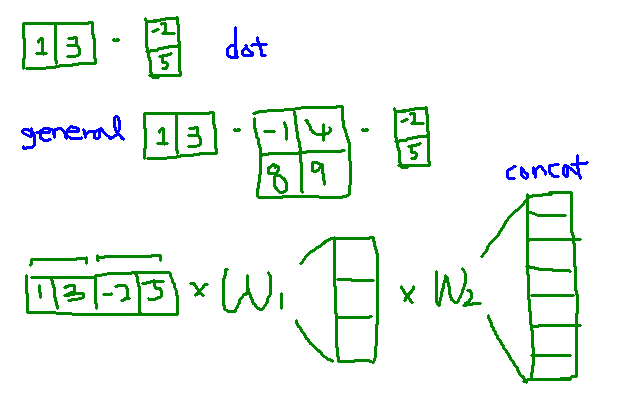 1 3 · -2 5 dot
general 1 3 · -1 4 8 9 · -2 5
concat
1 3 -2 5 × W₁ × W₂